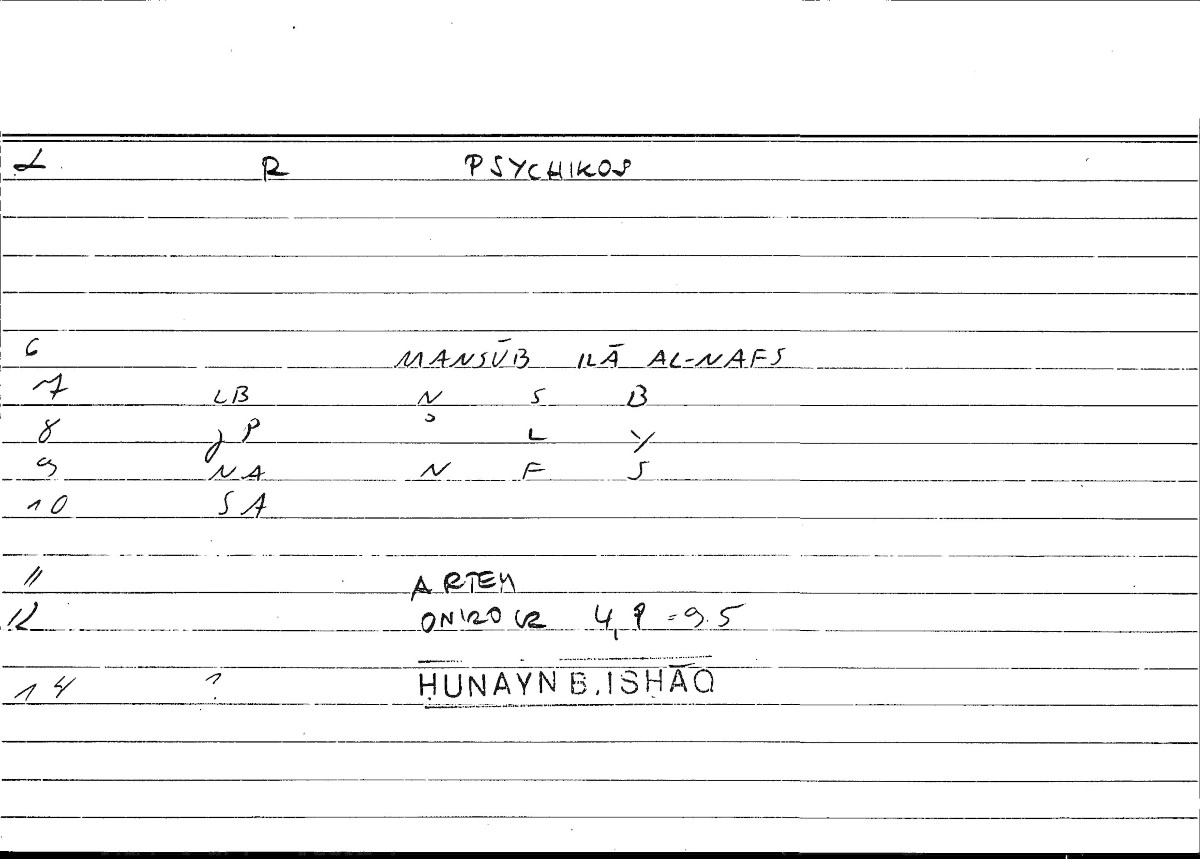 2 R PSYCHIKOS
6 MANSŪB ILĀ AL-NAFS
7 LB N S B
8 JP ' L Y
9 NA N F S
10 SA
11 ARTEM
12 ONIROCR 4, = 9.5
14 ? ḤUNAYN B. ISḤĀQ